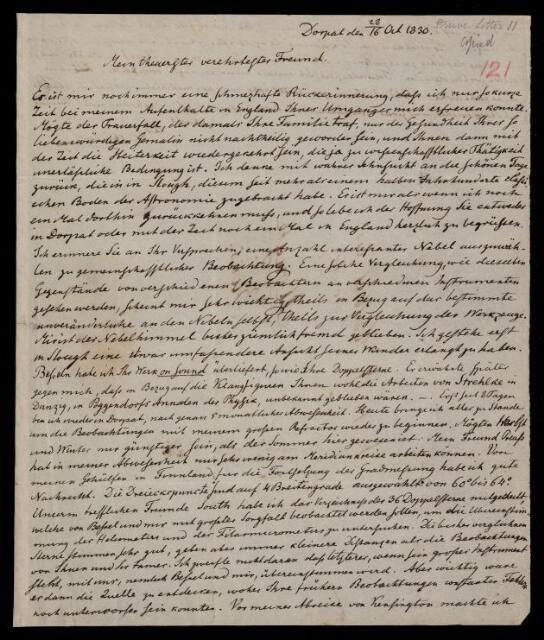 Struve Letter 11
Copied
121
Dorpat den 28/16 Oct 1830.
Mein theuerster verehrtester Freund.
Es ist mir noch immer eine schmerzhafte Rückerinnerung, dass ich nur so kurze
Zeit bei meinem Aufenthalte in England Ihres Umganges mich erfreuen konnte.
Mögte der Trauerfall, der damals Ihre Familie traf, nur der Gesundheit Ihrer so
liebenswürdigen Gemalin nicht nachtheilig geworden sein, und Ihnen dann mit
der Zeit die Heiterkeit wiedergekehrt sein, die ja zu wissenschaftlicher Thätigkeit
unerlässliche Bedingung ist. Ich denke mit wahrer Sehnsucht an die schönen Tage
zurück, die ich in Slough, diesem seit mehr als einem halben Jahrhunderte classi-
schen Boden der Astronomie zugebracht habe. Es ist mir als wenn ich noch
ein Mal dorthin zurückkehren muss, und so lebe ich der Hoffnung Sie entweder
in Dorpat oder mit der Zeit noch ein Mal in England herzlich zu begrüssen.
Ich erinnere Sie an Ihr Versprechen, eine Anzahl interessanter Nebel auszuwäh-
len zu gemeinschaftlicher Beobachtung. Eine solche Vergleichung, wie dieselben
Gegenstände von verschiedenen Beobachtern an verschiednen Instrumenten
gesehen werden, scheint mir sehr wichtig, theils in Bezug auf das bestimmte
unveränderliche an den Nebeln selbst, theils zur Vergleichung der Werkzeuge.
Mir ist der Nebelhimmel bisher ziemlich fremd geblieben. Ich gestehe erst
in Slough eine etwas umfassendere Ansicht seiner Wunder erlangt zu haben.
Bessel habe ich Ihr Werk on sound überliefert, so wie Ihre Doppelsterne. Er erwähnte später
gegen mich, dass in Bezug auf die Klangfiguren Ihnen wohl die Arbeiten von Strehlke in
Danzig, in Poggendorfs Annalen der Physik, unbekannt geblieben wären. — Erst seit 8 Tagen
bin ich wieder in Dorpat, nach genau 5 monatlicher Abwesenheit. Heute bringe ich alles zu Stande
um die Beobachtungen mit meinem grossen Refractor wieder zu beginnen. Mögten Herbst
und Winter nur günstiger sein, als der Sommer hier gewesen ist. Mein Freund Preuss
hat in meiner Abwesenheit nur sehr wenig am Meridiankreise arbeiten können. Von
meinen Gehülfen in Finnland für die Fortsetzung der Gradmessung habe ich gute
Nachricht. Die Dreieckspunkte sind auf 4 Breitengrade ausgewählt von 60° bis 64°.
Unserm trefflichen Freunde South habe ich das Verzeichniss der 36 Doppelsterne mitgetheilt
welche von Bessel und mir mit grosser Sorgfalt beobachtet werden sollen, um die Übereinstim-
mung des Heliometers und des Filarmicrometers zu untersuchen. Die bisher verglichenen
Sterne stimmen sehr gut, geben aber immer kleinere Distanzen als die Beobachtungen
von Ihnen und Sir James. Ich zweifle nicht daran dass letzterer, wenn sein grosses Instrument
steht, mit uns, nemlich Bessel und mir, übereinstimmen wird. Aber wichtig wäre
es dann die Quelle zu entdecken, woher Ihre frühern Beobachtungen constanten Fehlern
noch unterworfen sein konnten. Vor meiner Abreise von Kensington machte ich